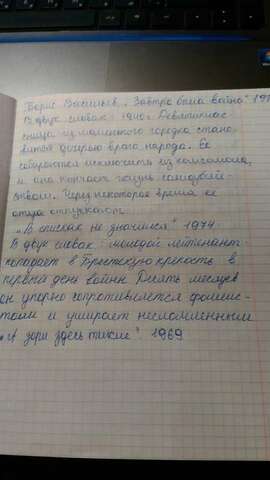 Борис Васильев „Завтра была война" 19
В двух словах: 1940г Девятиклас
сница из маленького городка стано-
вится дочерью врага народа. Ее
собираются исключить из комсомола,
и она кончает жизнь самоубий-
ством. Через некоторое время ее
отца отпускают.
„В списках не значился" 1974
В двух словах: молодой лейтенант
попадает в Брестскую крепость в
первый день войны Десять месяцев
он упорно сопротивляется фашис-
там и умирает несломленным
„А зори здесь тихие" 1969